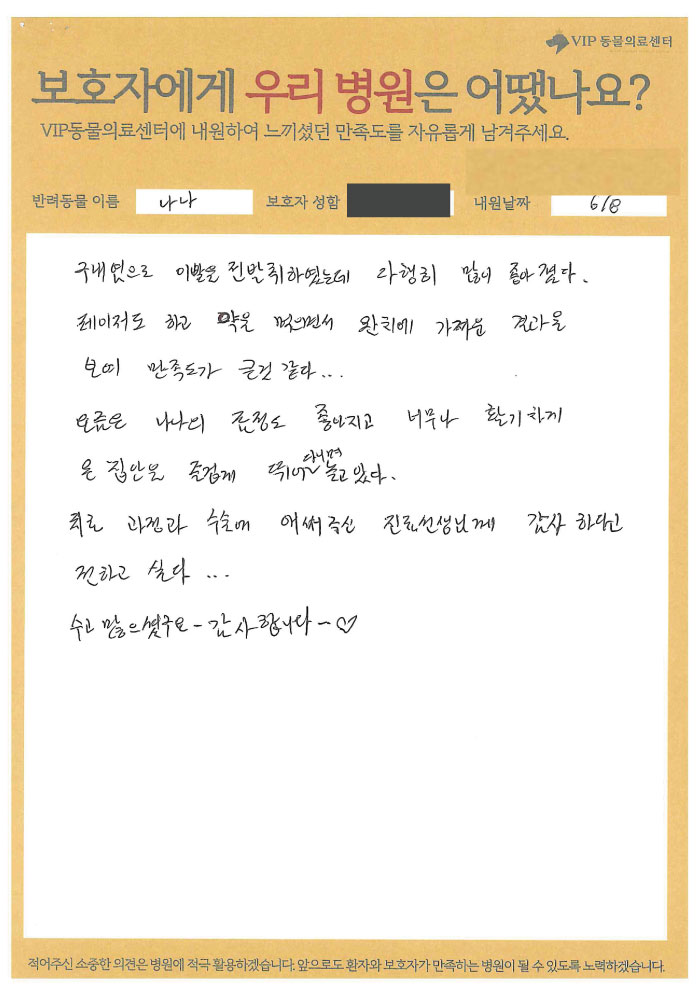 VIP 동물의료센터
보호자에게 우리 병원은 어땠나요?
VIP동물의료센터에 내원하여 느끼셨던 만족도를 자유롭게 남겨주세요.
반려동물 이름 나나 보호자 성함 내원날짜 6/8
구내염으로 이빨을 전발취하였는데 다행히 많이 좋아졌다.
레이저도 하고 약을 먹으면서 완치에 가까운 결과를
보여 만족도가 큰건 같다...
요즘은 나나의 표정도 좋아지고 너무나 활기하게
온 집안을 즐겁게 뛰어다니며 놀고있다.
치료 과정과 수술에 애써주신 진료선생님께 감사 하다고
전하고 싶다...
수고 많으셨구요~ 감사합니다~♡
적어주신 소중한 의견은 병원에 적극 활용하겠습니다. 앞으로도 환자와 보호자가 만족하는 병원이 될 수 있도록 노력하겠습니다.